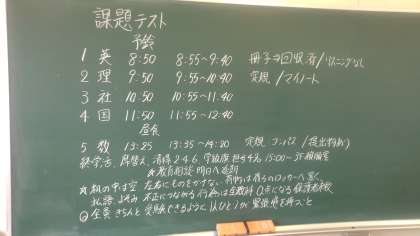 課題テスト
予鈴
1 英 8:50 8:55~9:40 冊子を回収 有/リスニングなし
2 理 9:50 9:55~10:40 定規/マイノート
3 社 10:50 10:55~11:40
4 国 11:50 11:55~12:40
昼食
5 数 13:25 13:35~14:20 定規 コンパス/提出物
終学活、席替え、清掃2.4.6
★教育相談 明日へ延期
★机の中は空 左右にものをかけない 荷物は後ろのロッカーへ置く
私語、よそみ 不正につながる行為は全教科0点になる
◎全員 きちんと受験できるように1人ひとりが緊張感を持つこと